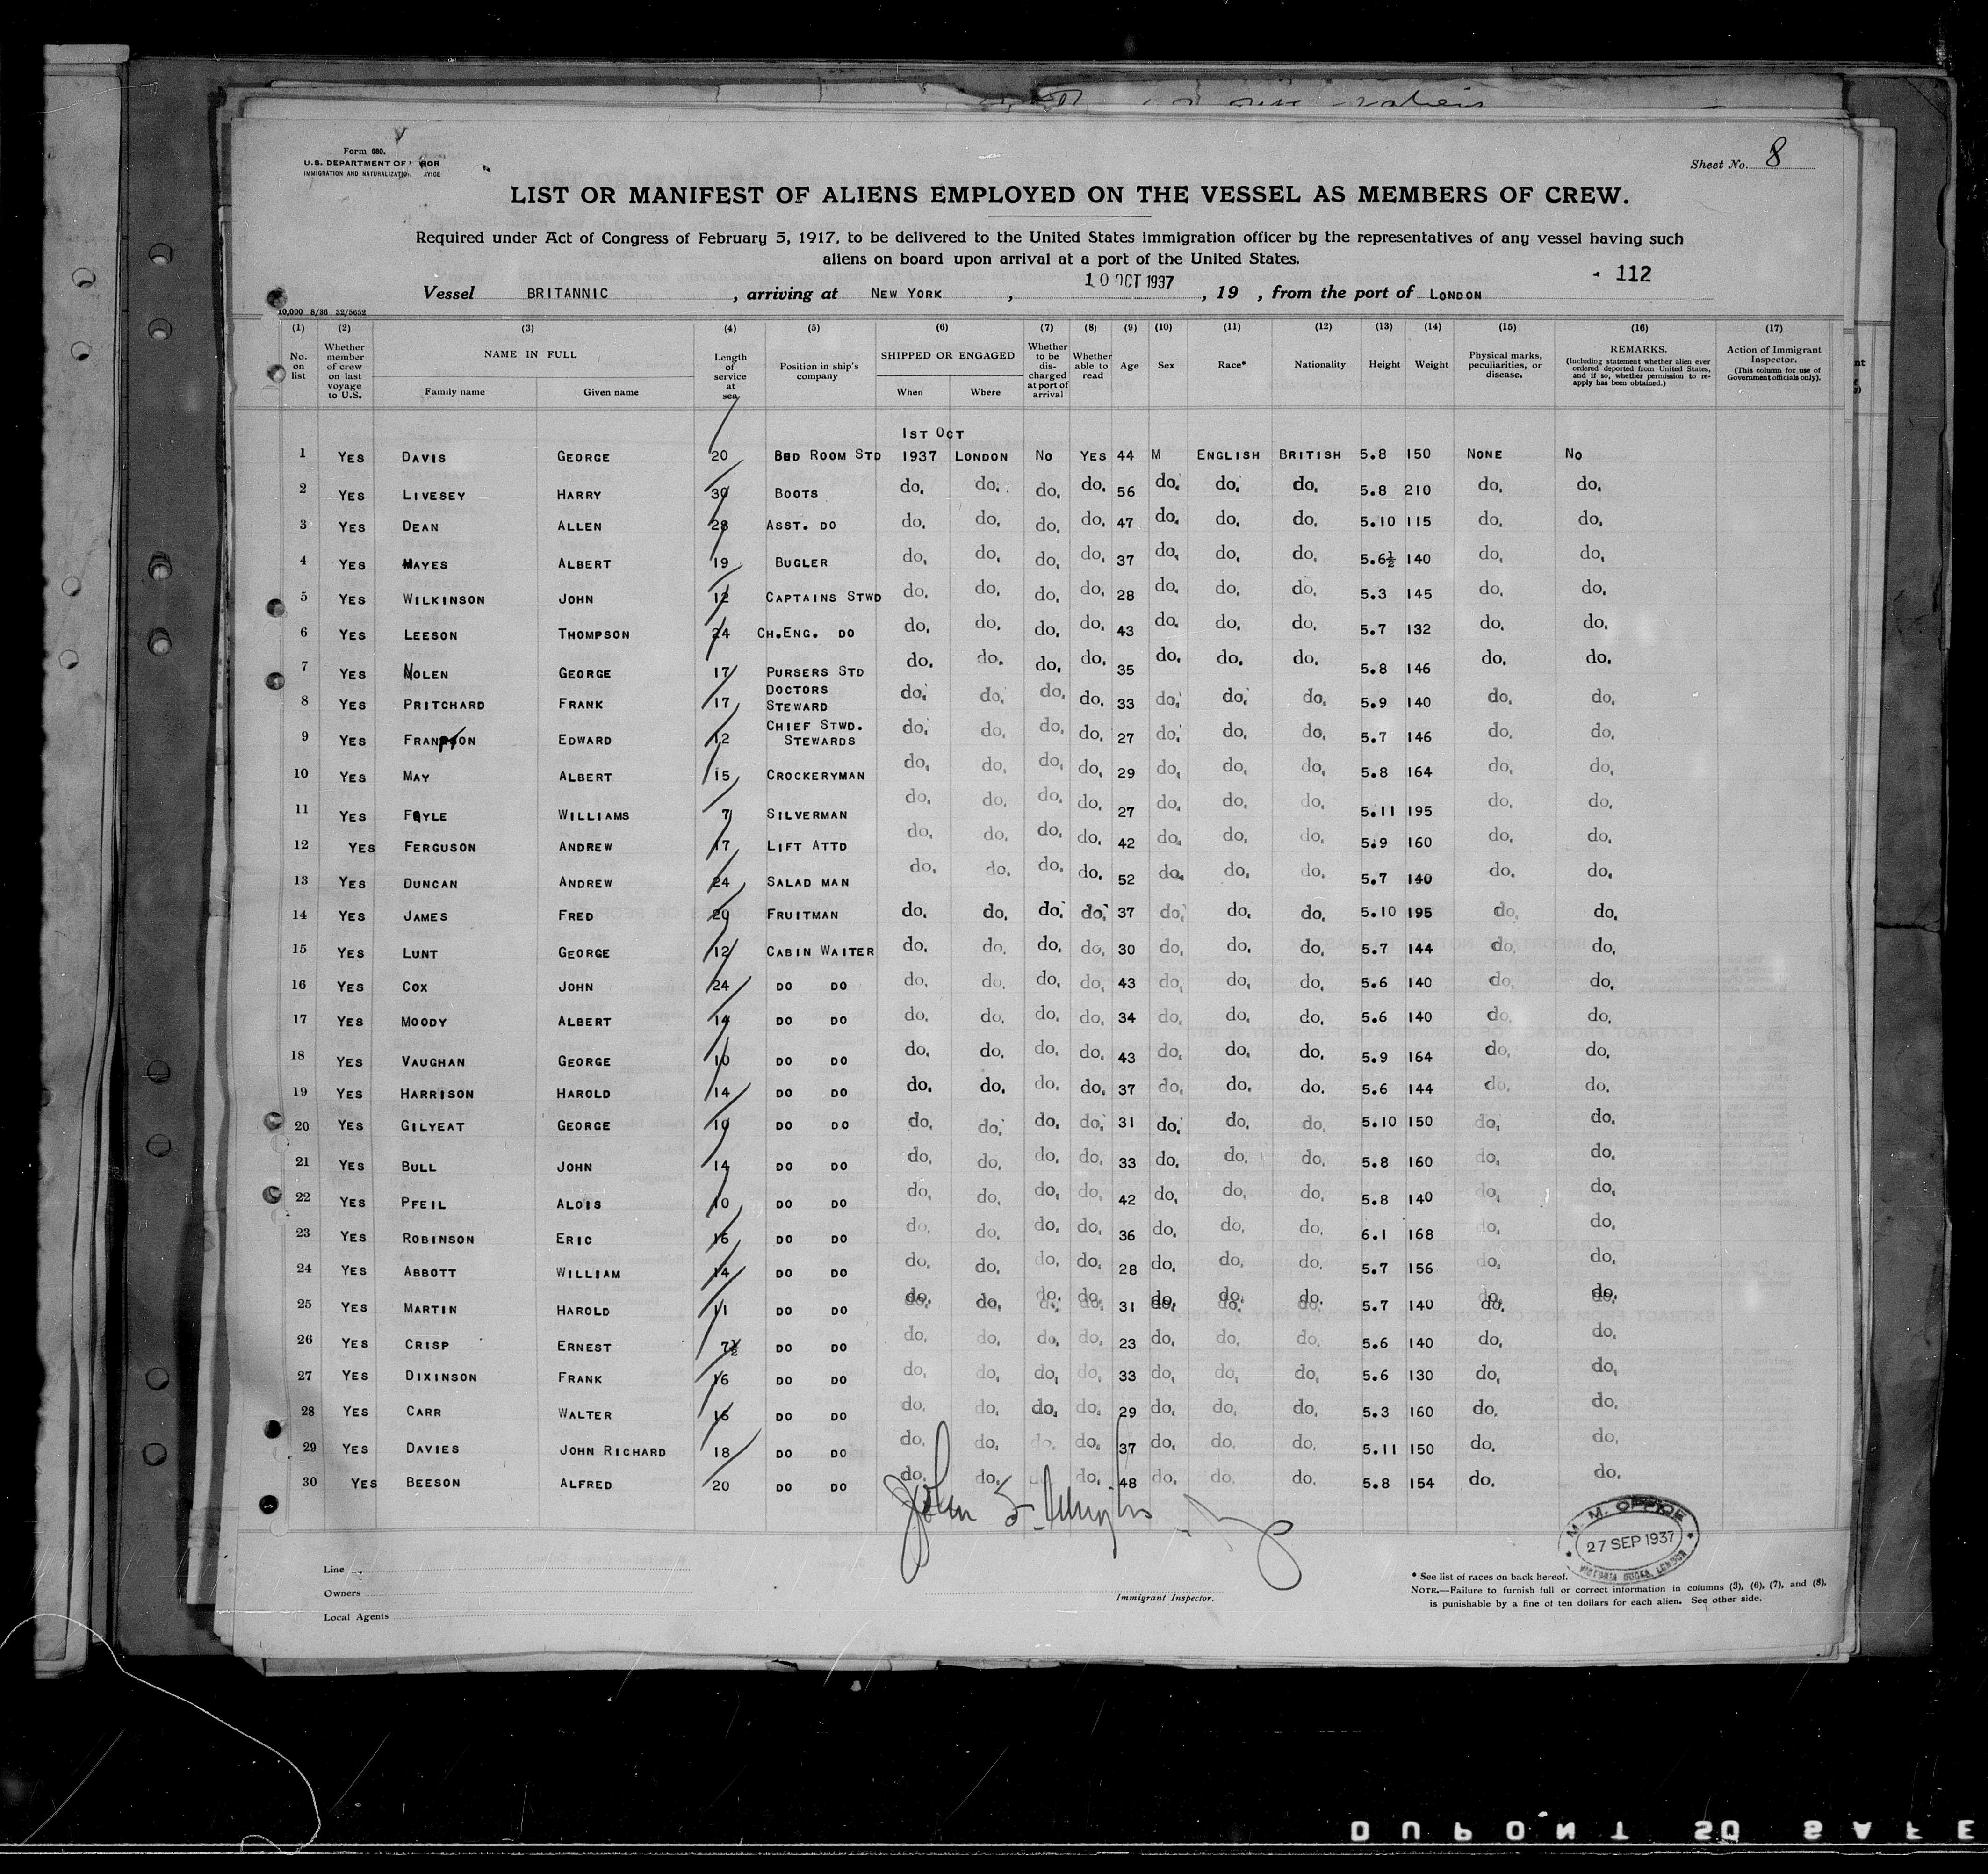 Form 680.
U.S. DEPARTMENT OF
IMMIGRATION AND NATURALIZATION
Sheet No. 8
LIST OR MANIFEST OF ALIENS EMPLOYED ON THE VESSEL AS MEMBERS OF CREW.
Required under Act of Congress of February 5, 1917, to be delivered to the United States immigration officer by the representatives of any vessel having such
aliens on board upon arrival at a port of the United States.
- 112
Vessel BRITANNIC , arriving at NEW YORK , 10 OCT 1937 , 19 , from the port of LONDON
10,000 8/36 32/5652
(1) (2) (3) (4) (5) (6) (7) (8) (9) (10) (11) (12) (13) (14) (15) (16) (17)
No. on list Whether member of crew on last voyage to U.S. NAME IN FULL Family name Given name Length of service at sea Position in ship's company SHIPPED OR ENGAGED When Where Whether to be discharged at port of arrival Whether able to read Age Sex Race* Nationality Height Weight Physical marks, peculiarities, or disease. REMARKS. (Including statement whether alien ever ordered deported from United States, and if so, whether permission to re-apply has been obtained.) Action of Immigrant Inspector. (This column for use of Government officials only).
1ST OCT
1 YES DAVIS GEORGE 20 BED ROOM STD 1937 LONDON NO YES 44 M ENGLISH BRITISH 5.8 150 NONE NO
2 YES LIVESEY HARRY 30 BOOTS do. do. do. do. 56 do. do. do. 5.8 210 do. do.
3 YES DEAN ALLEN 28 ASST. DO do. do. do. do. 47 do. do. do. 5.10 115 do. do.
4 YES MAYES ALBERT 19 BUGLER do. do. do. do. 37 do. do. do. 5.6½ 140 do. do.
5 YES WILKINSON JOHN 12 CAPTAINS STWD do. do. do. do. 28 do. do. do. 5.3 145 do. do.
6 YES LEESON THOMPSON 24 CH.ENG. DO do. do. do. do. 43 do. do. do. 5.7 132 do. do.
7 YES NOLEN GEORGE 17 PURSERS STD do. do. do. do. 35 do. do. do. 5.8 146 do. do.
8 YES PRITCHARD FRANK 17 DOCTORS STEWARD do. do. do. do. 33 do. do. do. 5.9 140 do. do.
9 YES EDWARD 12 CHIEF STWD. STEWARDS do. do. do. do. 27 do. do. do. 5.7 146 do. do.
10 YES MAY ALBERT 15 CROCKERYMAN do. do. do. do. 29 do. do. do. 5.8 164 do. do.
11 YES WILLIAMS 7 SILVERMAN do. do. do. do. 27 do. do. do. 5.11 195 do. do.
12 YES FERGUSON ANDREW 17 LIFT ATTD do. do. do. do. 42 do. do. do. 5.9 160 do. do.
13 YES DUNCAN ANDREW 24 SALAD MAN do. do. do. do. 52 do. do. do. 5.7 140 do. do.
14 YES JAMES FRED 20 FRUITMAN do. do. do. do. 37 do. do. do. 5.10 195 do. do.
15 YES LUNT GEORGE 12 CABIN WAITER do. do. do. do. 30 do. do. do. 5.7 144 do. do.
16 YES COX JOHN 24 DO DO do. do. do. do. 43 do. do. do. 5.6 140 do. do.
17 YES MOODY ALBERT 14 DO DO do. do. do. do. 34 do. do. do. 5.6 140 do. do.
18 YES VAUGHAN GEORGE 10 DO DO do. do. do. do. 43 do. do. do. 5.9 164 do. do.
19 YES HARRISON HAROLD 14 DO DO do. do. do. do. 37 do. do. do. 5.6 144 do. do.
20 YES GILYEAT GEORGE 10 DO DO do. do. do. do. 31 do. do. do. 5.10 150 do. do.
21 YES BULL JOHN 14 DO DO do. do. do. do. 33 do. do. do. 5.8 160 do. do.
22 YES PFEIL ALOIS 10 DO DO do. do. do. do. 42 do. do. do. 5.8 140 do. do.
23 YES ROBINSON ERIC 16 DO DO do. do. do. do. 36 do. do. do. 6.1 168 do. do.
24 YES ABBOTT WILLIAM 14 DO DO do. do. do. do. 28 do. do. do. 5.7 156 do. do.
25 YES MARTIN HAROLD 11 DO DO do. do. do. do. 31 do. do. do. 5.7 140 do. do.
26 YES CRISP ERNEST 7½ DO DO do. do. do. do. 23 do. do. do. 5.6 140 do. do.
27 YES DIXINSON FRANK 16 DO DO do. do. do. do. 33 do. do. do. 5.6 130 do. do.
28 YES CARR WALTER 16 DO DO do. do. do. do. 29 do. do. do. 5.3 160 do. do.
29 YES DAVIES JOHN RICHARD 18 DO DO do. do. do. do. 37 do. do. do. 5.11 150 do. do.
30 YES BEESON ALFRED 20 DO DO do. do. do. do. 48 do. do. do. 5.8 154 do. do.
John
M. M. OFFICE
27 SEP 1937
VICTORIA DOCKS, LONDON
Line
Owners
Local Agents
Immigrant Inspector.
* See list of races on back hereof.
NOTE.—Failure to furnish full or correct information in columns (3), (6), (7), and (8),
is punishable by a fine of ten dollars for each alien. See other side.
DUPONT SAFE